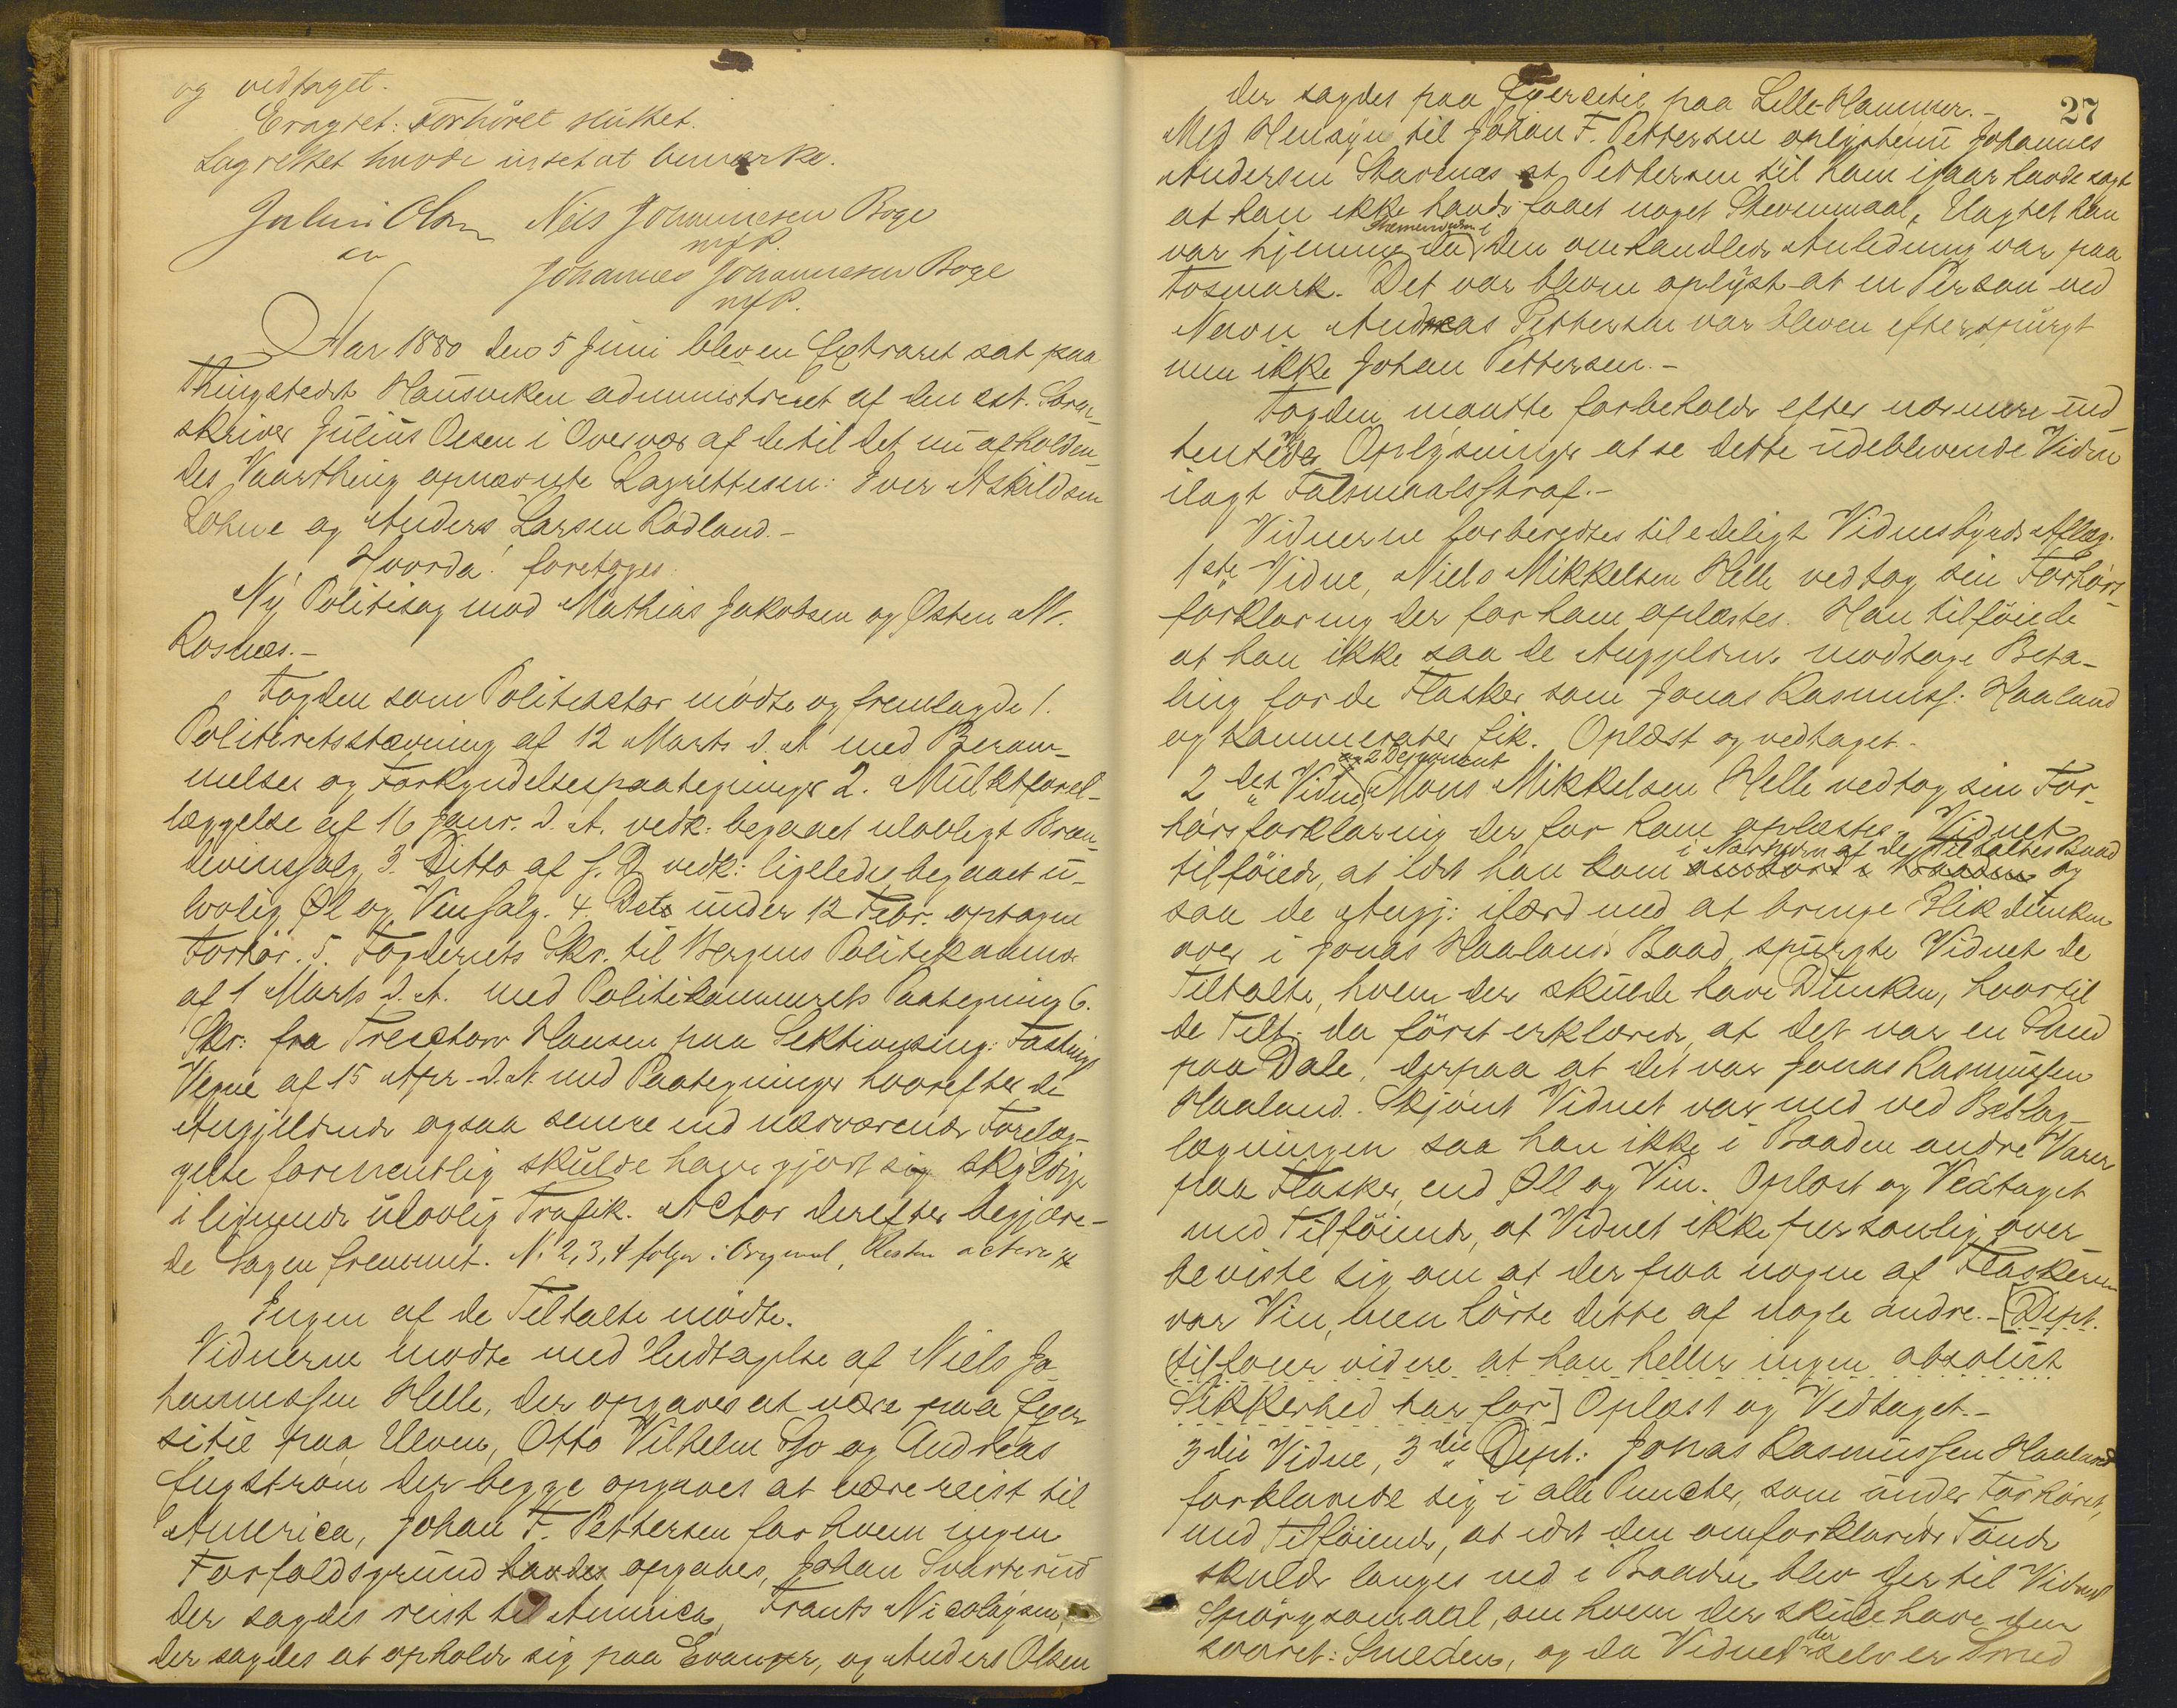 og vedtaget.
Eragtet: Forhöret sluttet.
Lagrettet havde intet at bemærke.
Julius Olsen Niels Johannesen Boge
mfP.
Johannes Johannesen Boge
mfP.
Aar 1880 den 5 Juni blev en Extraret sat paa
Thingstedet Hausviken administreret af den cst. Soren-
skriver Julius Olsen i Overvær af de til det nu afholden-
des Vaarthing opnævnte Lagrettesm: Iver Askildsen
Lohne og Anders Larsen Rödland.-
Hvorda! foretoges:
Ny Politisag mod Mathias Jakobsen og Østen M.
Rosnæs.-
Fogden som Politiactor mödte og fremlagde 1.
Politiretsstævning af 12 Marts d. A. med Beram-
melses og Forkyndelsespaategninger 2. Mulktforel-
læggelse af 16 Janr. d. A. vedk: begaaet ulovligt Bræn-
devinssalg 3. Ditto af s. D. vedk: ligeledes begaaet u-
lovlig Øl og Vinsalg. 4. Dets under 12 Febr. optagne
Forhör. 5. Fogderiets Skr. til Bergens Politikammer
af 1 Marts d. A. med Politikammerets Paategning 6.
Skr: fra Hansen paa Sektionsing: Fastings
Vegne af 15 Apr. d. A. med Paategninger hvorefter de
Angjeldende ogsaa senere end nærværende Forelæg-
gelse formentlig skulde have gjort sig skyldige
i lignende ulovlig Trafik. Actor derefter begjære-
de Sagen fremmet. N. 2, 3, 4 følger i Original, Resten acteres
Ingen af de Tiltalte mödte.
Vidnerne mödte med Undtagelse af Niels Jo-
hannessen Helle, der opgaves at være paa Exer-
sitie paa Ulven, Otto Vilhelm og Andreas
Engström der begge opgaves at være reist til
America, Johan F. Pettersen for hvem ingen
Forfaldsgrund havdes opgaves, Johan
der sagdes reist til America, Frants Nicolaysen,
der sagdes at opholde sig paa Evanger, og Anders Olsen
27
der sagdes paa Exercitie paa Lille-Hammer.-
Med Hensyn til Johan F. Pettersen oplystes nu Johannes
Andersen Stavenæs at Pettersen til ham igaar havde sagt
at han ikke havde faaet noget Stevnemaal, Uagtet han
Stevnevidnet
var hjemme da den omhandlede Anledning var paa
Fosmark. Det var bleven oplyst at en Person ved
Navn Andreas Pettersen var bleven efterspurgt
men ikke Johan Pettersen.-
Fogden maatte forbeholde efter nærmere ind-
hentede Oplysninger at se dette udeblevende Vidne
ilagt Falsmaalsstraf.-
Vidnerne forberedtes til edeligt Vidnesbyrds Aflæg.
1ste Vidne, Niels Mikkelsen Helle vedtog sin Forhörs-
forklaring der for ham oplæstes. Han tilföiede
at han ikke saa de Angjeldende modtage Beta-
ling for de Flasker som Jonas Rasmuss: Haaland
og Kammerater fik. Oplæst og vedtaget.-
og 2 Deponent
2det Vidne Mons Mikkelsen Helle vedtog sin For-
hörsforklaring der for ham oplæstes, Vidnet
i Nærheden af de Tiltaltes Baad
tilföiede, at idet han kom og
saa de Angj: ifærd med at bringe Blikdunken
over i Jonas Haalands Baad, spurgte Vidnet de
Tiltalte, hvem der skulde have Dunken, hvortil
de Tilt. da först erklærede, at det var en Smed
paa Dale, derpaa at det var Jonas Rasmussen
Haaland. Skjönt Vidnet var med ved Beslag-
lægningen saa han ikke i Baaden andre Varer
paa Flasker, end Øll og Vin. Oplæst og Vedtaget
med Tilföiende, at Vidnet ikke personlig over-
beviste sig om at der paa nogen af Flaskerne
var Vin, men hörte dette af nogle andre.- [Dept.
tilföier videre at han heller ingen absolut
Sikkerhed har for] Oplæst og Vedtaget.-
3die Vidne, 3die Dept: Jonas Rasmussen Haaland
forklarede sig i alle Puncter, som under Forhöret,
med Tilföiende, at idet den omforklarede Tönde
skulde langes ned i Baaden blev der til Vidnets
Spörgsmaal, om hvem der skulde have den
svaret: Smeden, og da Vidnet der selv er Smed